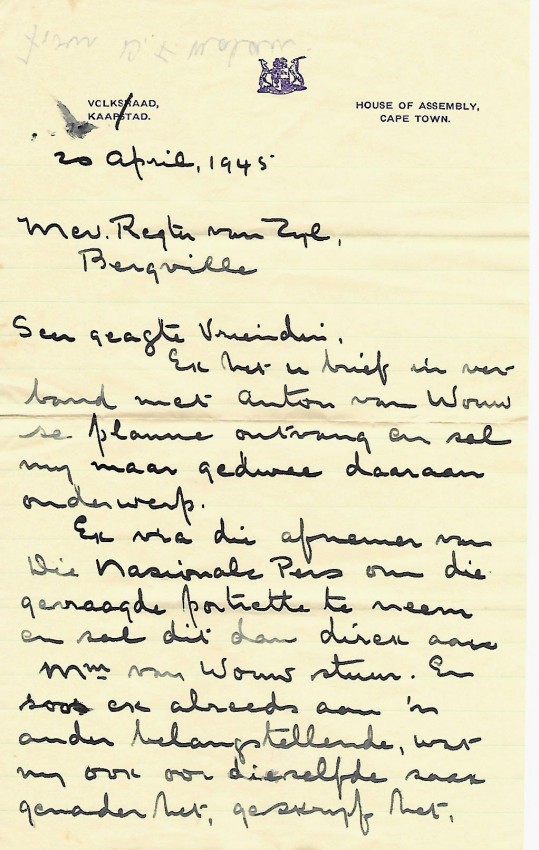 VOLKSRAAD,
KAAPSTAD.
HOUSE OF ASSEMBLY,
CAPE TOWN.
20 April, 1945
Mev. Regter van Zyl,
Bergville
Seer geagte Vriendin,
Ek het u brief in ver-
band met Anton van Wouw
se planne ontvang en sal
my maar gedwee daaraan
onderwerp.
Ek vra die afnemer van
Die Nasionale Pers om die
gevraagde portrette te neem
en sal dit dan direk aan
Mnr van Wouw stuur. En
soos ek alreeds aan 'n
ander belangstellende, wat
my ook oor dieselfde saak
genader het, geskryf het,